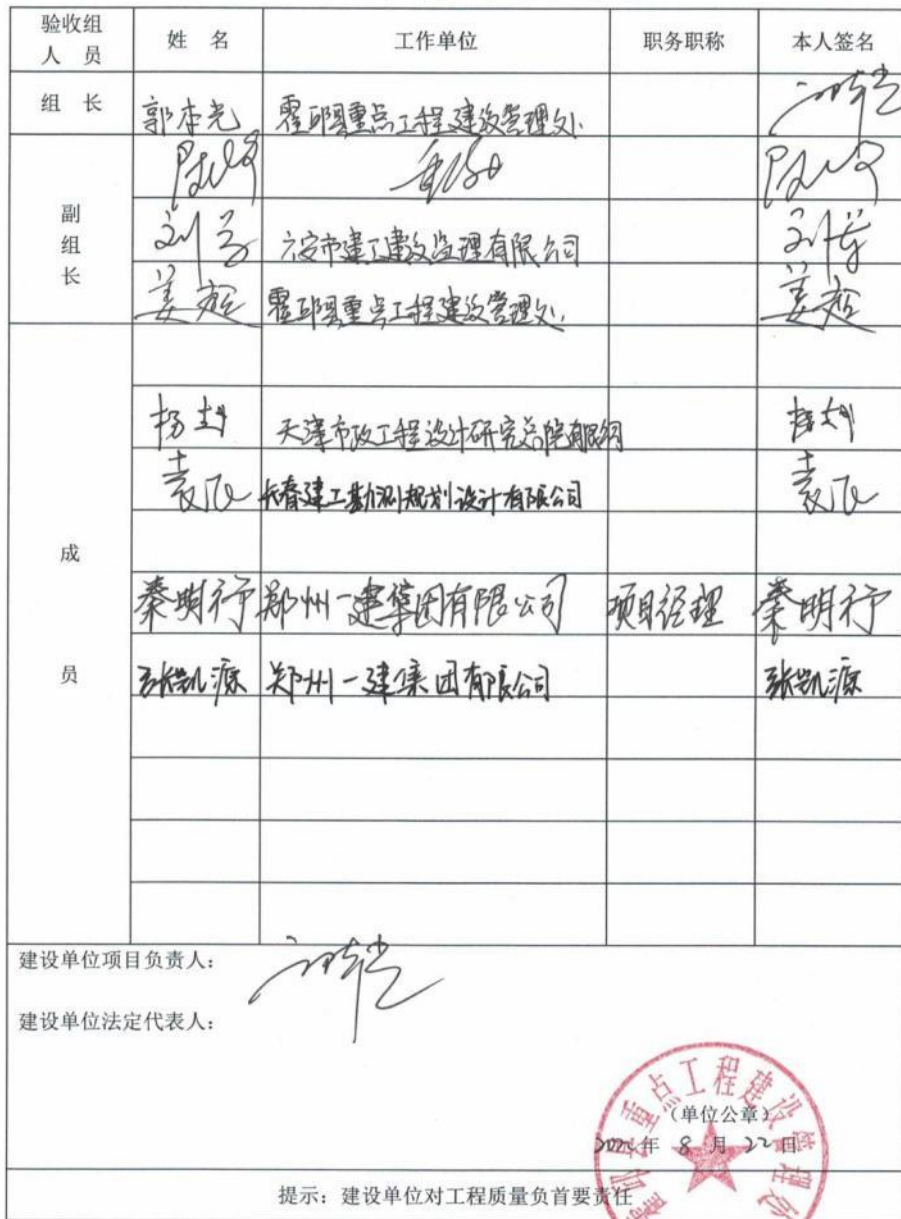 验收组人员 姓 名 工作单位 职务职称 本人签名
组 长 郭本光 霍邱县重点工程建设管理处
副组长
六安市建工建设监理有限公司
霍邱县重点工程建设管理处
成员
天津市政工程设计研究总院有限公司
袁飞 长春建工勘测规划设计有限公司 袁飞
秦明行 郑州一建集团有限公司 项目经理 秦明行
张凯源 郑州一建集团有限公司 张凯源
建设单位项目负责人：
建设单位法定代表人：
重点工程建设管理处
（单位公章）
年 8 月 22 日
提示：建设单位对工程质量负首要责任